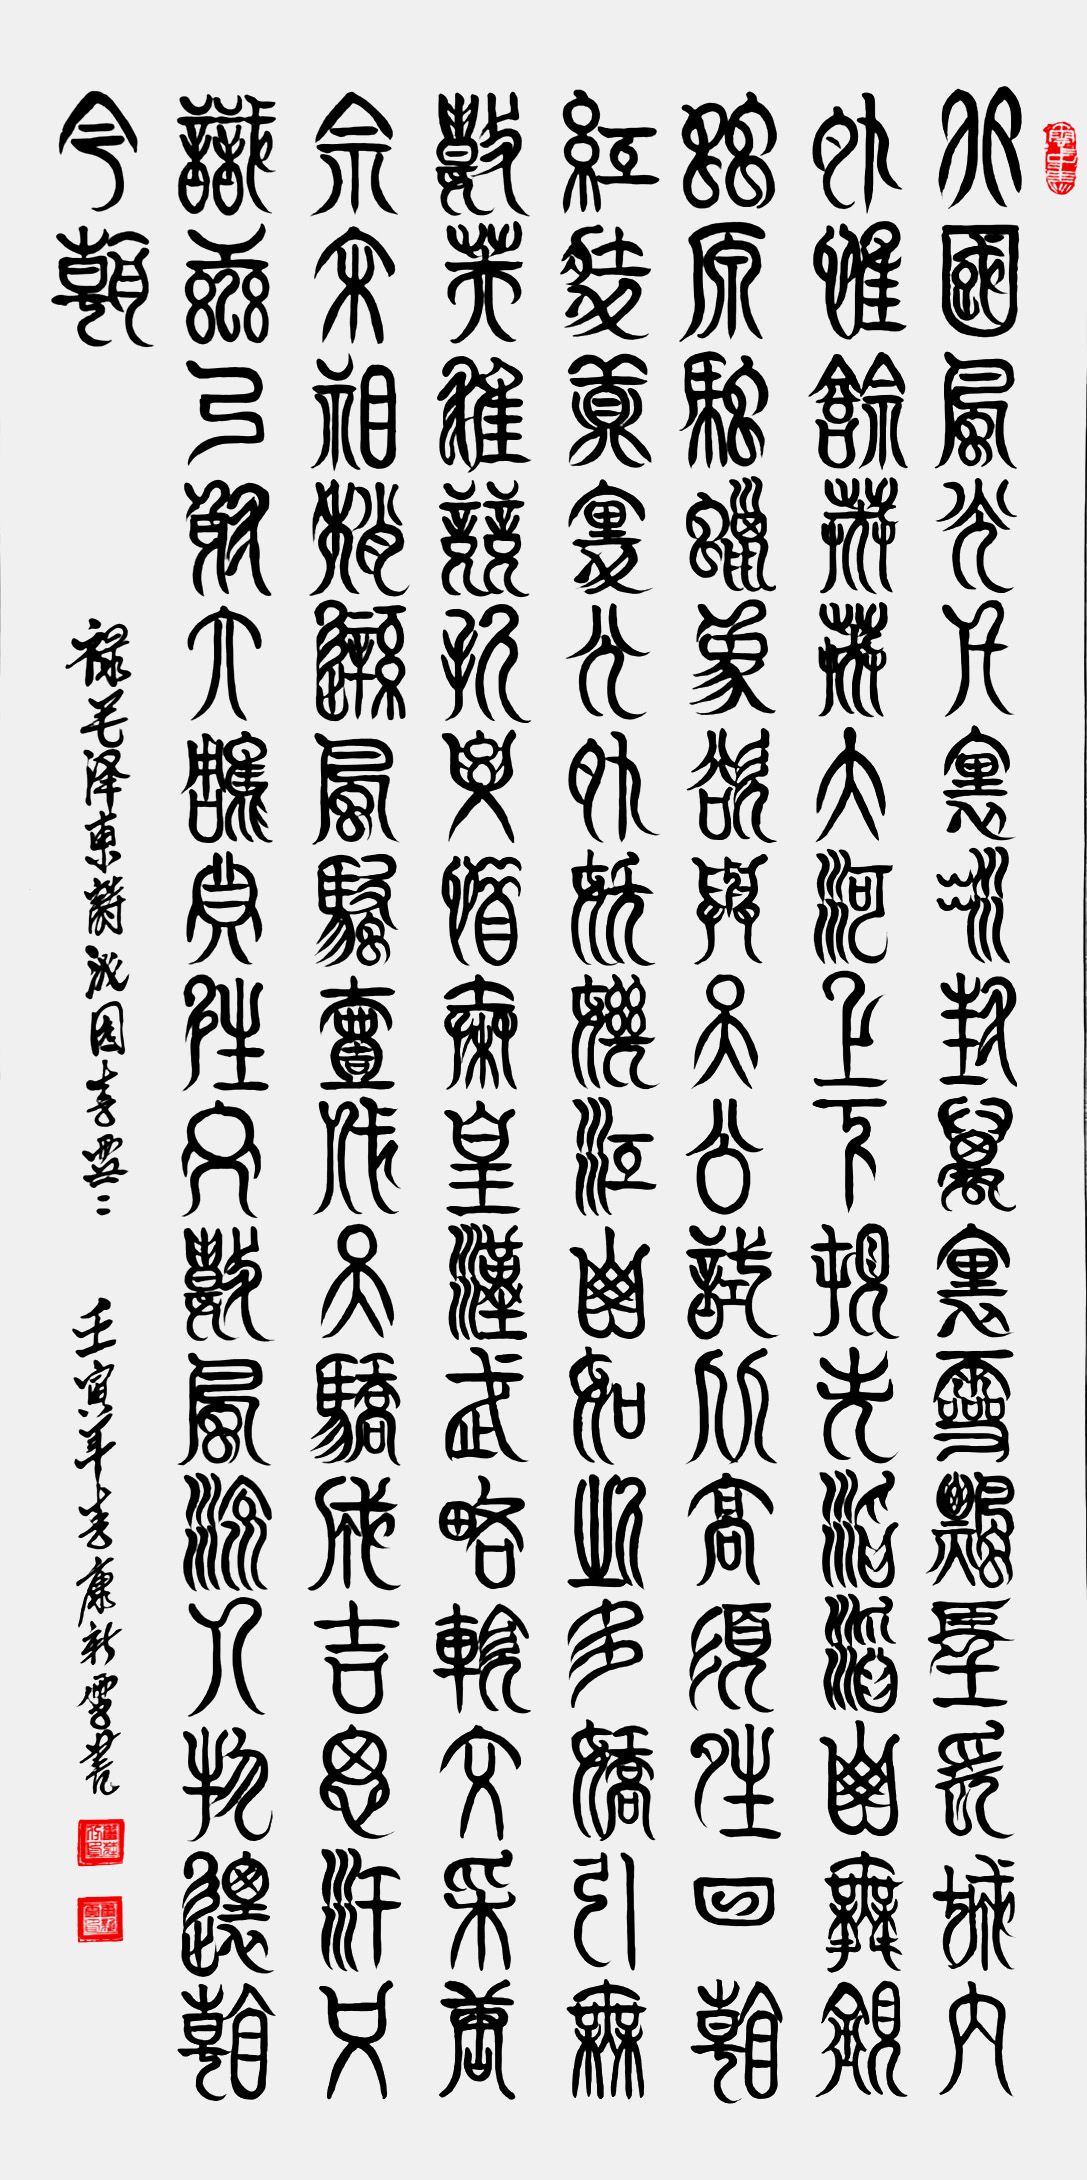 北國風光千里冰封萬里雪飄望長城內
外惟餘莽莽大河上下頓失滔滔山舞銀
蛇原馳蠟象欲與天公試比高須晴日看
紅裝素裹分外妖嬈江山如此多嬌引無
數英雄競折腰惜秦皇漢武略輸文采唐
宗宋祖稍遜風騷壹代天驕成吉思汗只
識彎弓射大雕俱往矣數風流人物還看
今朝
禄毛泽東詩沁园春雪 壬寅年春康新雪書